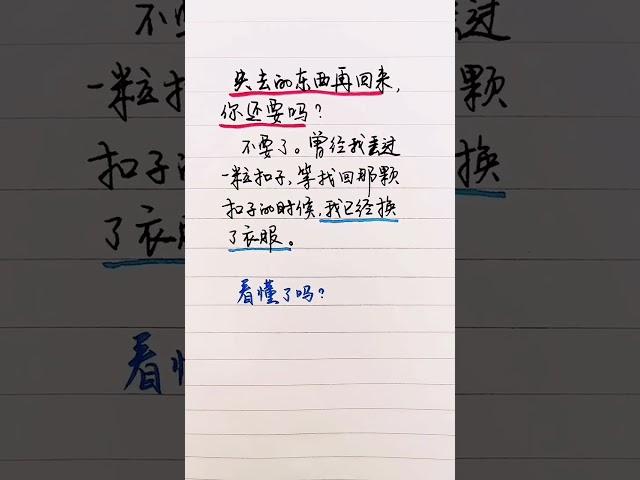 失去的东西再回来，
你还要吗？
不要了。曾经我丢过
一粒扣子，等找回那颗
扣子的时候，我已经换
了衣服。
看懂了吗？